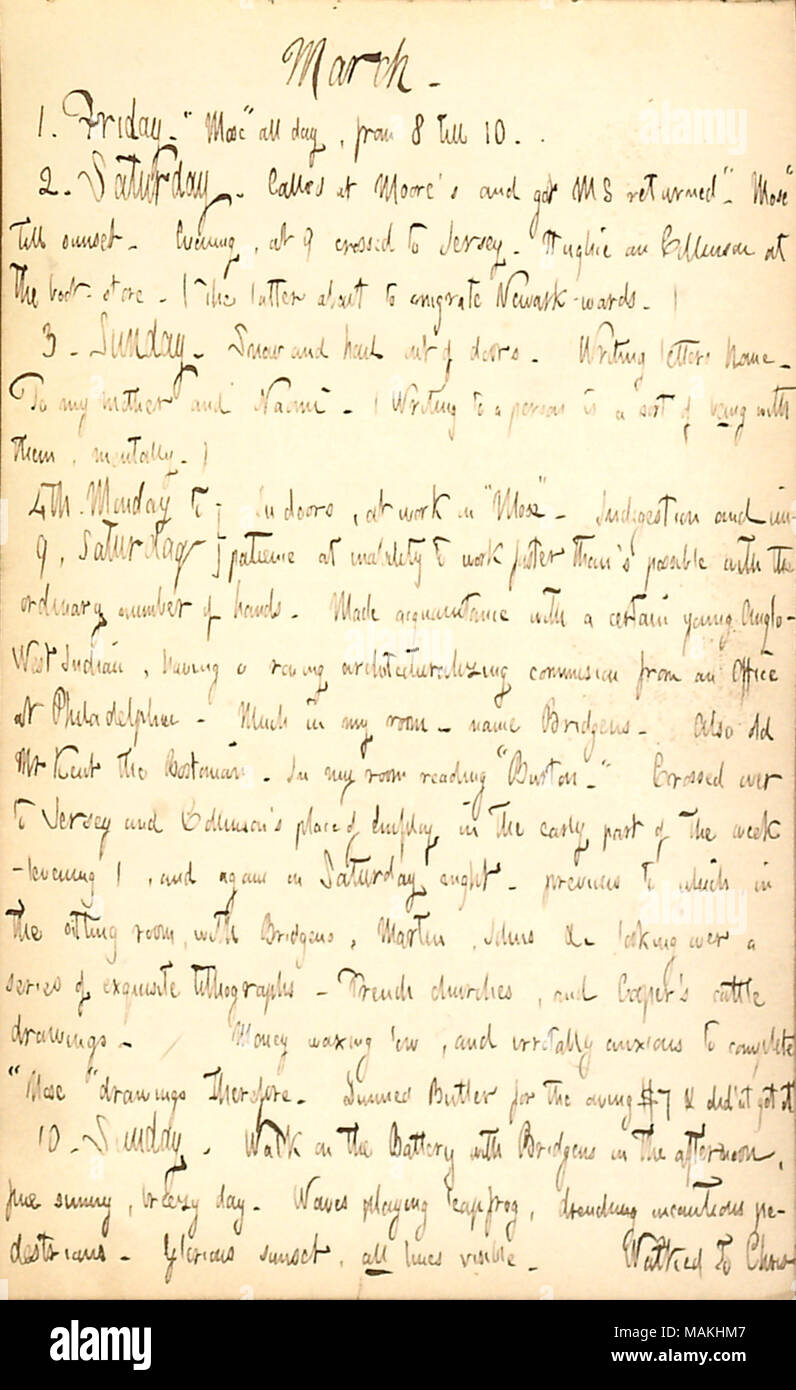 March -
1. Friday - "Mose" all day, from 8 till 10. .
2 - Saturday - Called at Moore's and got MS returned - "Mose"
till sunset - Evening, at 9 crossed to Jersey - Hughie an Collinson at
the book-store - ( the latter about to emigrate Newark-wards - )
3 - Sunday - Snow and hail out of doors - Writing letters home -
To my mother and Naomi - ( Writing to a person is a sort of being with
them, mentally - )
4th. Monday to ] In doors, at work on "Mose" - Indigestion and im-
9, Saturday ] patience at inability to work faster than's possible with the
ordinary number of hands - Made acquaintance with a certain young Anglo-
West Indian, having a roving architecturalizing commision from an Office
at Philadelphia - Much in my room - name Bridgens - Also old
Mr Kent the Bostonian - In my room reading "Burton -" Crossed over
to Jersey and Collinson's place of employ in the early part of the week
- (evening ), and again on Saturday night - previous to which in
the sitting room, with Bridgens, Martin, Johns &c looking over a
series of exquisite lithographs - French churches, and Cooper's cattle
drawings - Money waxing low, and irritably anxious to complete
"Mose" drawings therefore - Dunned Butler for the owing $7 & did'nt get it
10 - Sunday - Walk on the Battery with Bridgens in the afternoon,
fine sunny, breezy day - Waves playing leapfrog, drenching incautious pe-
destrians - Glorious sunset, all hues visible - Walked to Chris
alamy
Image ID: MAKHM7
www.alamy.com